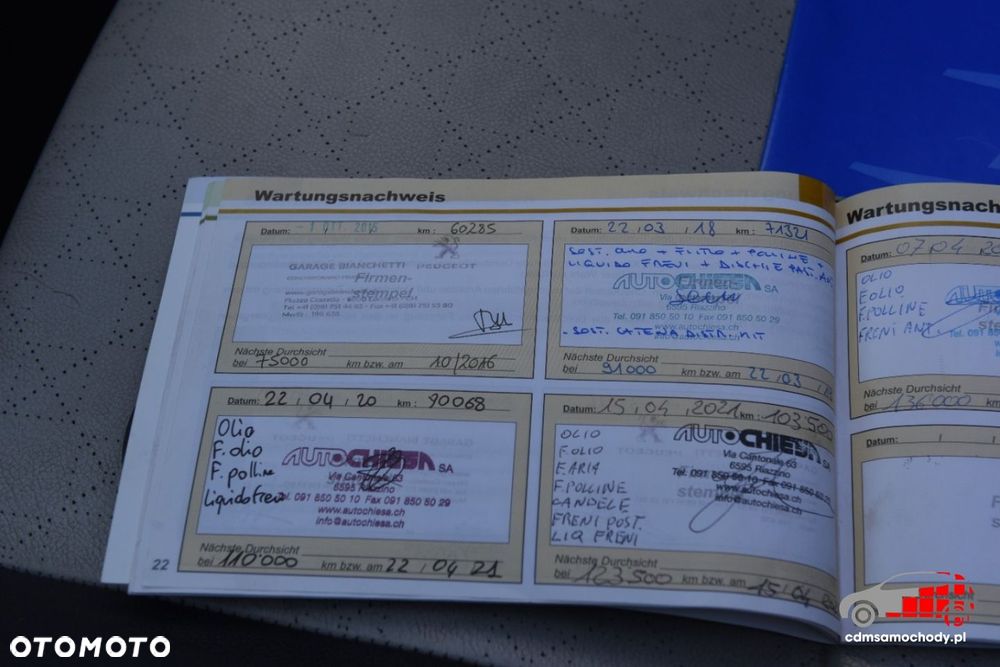 Wartungsnachweis
Datum: - 1 OTT. 2015 km: 60285
GARAGE BIANCHETTI PEUGEOT
Firmen-
stempel
Nächste Durchsicht
bei 75000 km bzw. am 10/2016
Datum: 22 , 03 , 18 km: 71321
SOST. OLIO + FILTRO + POLLINE +
LIQUIDO FRENI + DISCHI E PAST. ANT
AUTOCHIESA SA
6595 Riazzino
Tel. 091 850 50 10 Fax 091 850 50 29
www.autochiesa.ch
. SOST. CATENA DISTR. KIT
Nächste Durchsicht
bei 91000 km bzw. am 22 , 03
Datum: 22 , 04 , 20 km: 90068
Olio
F. olio
F. polline
Liquido freni
AUTOCHIESA SA
Via Cantonale 63
6595 Riazzino
Tel. 091 850 50 10 Fax 091 850 50 29
www.autochiesa.ch
info@autochiesa.ch
Nächste Durchsicht
bei 110'000 km bzw. am 22 , 04 21
22
Datum: 15 , 04 , 2021 km: 103'500
OLIO
F.OLIO
F.ARIA
F.POLLINE
CANDELE
FRENI POST.
LIQ FRENI
AUTOCHIESA SA
Via Cantonale 63
6595 Riazzino
Tel. 091 850 50 10 Fax 091 850 50 29
www.autochiesa.ch
info@autochiesa.ch
Nächste Durchsicht
bei 123'500 km bzw. am 15 , 04
Wartungsnach
Datum: 07 04
OLIO
F.OLIO
F.POLLINE
FRENI ANT.
Tel. 091
Nächste Durchsicht
bei 136'000 km
Datum:
OTOMOTO
cdmsamochody.pl